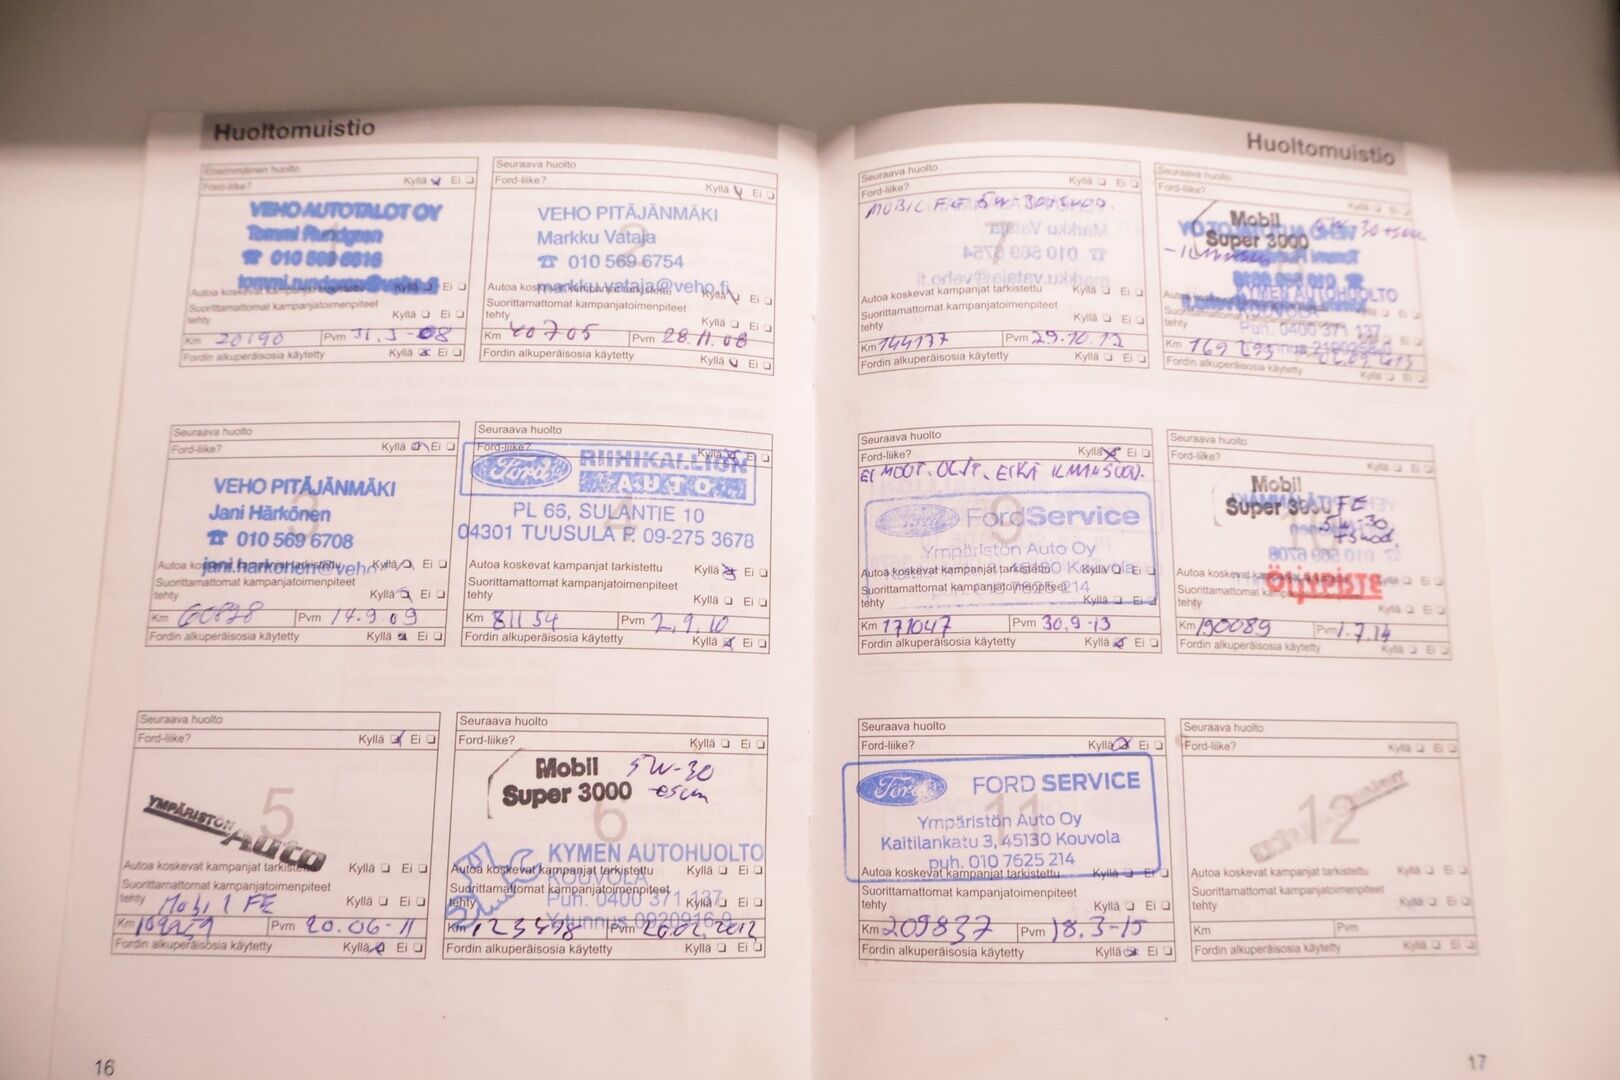 Huoltomuistio
Ensimmäinen huolto
Ford-liike? Kyllä Ei
VEHO AUTOTALOT OY
Tommi Rundgren
☎ 010 569 6616
tommi.rundgren@veho.fi
Autoa koskevat kampanjat tarkistettu Kyllä Ei
Suorittamattomat kampanjatoimenpiteet
tehty Kyllä Ei
Km 20190 Pvm 31.3-08
Fordin alkuperäisosia käytetty Kyllä Ei
Seuraava huolto
Ford-liike? Kyllä Ei
VEHO PITÄJÄNMÄKI
Markku Vataja
2
☎ 010 569 6754
markku.vataja@veho.fi
Autoa koskevat kampanjat tarkistettu Kyllä Ei
Suorittamattomat kampanjatoimenpiteet
tehty Kyllä Ei
Km 40705 Pvm 28.11.08
Fordin alkuperäisosia käytetty Kyllä Ei
Seuraava huolto
Ford-liike? Kyllä Ei
VEHO PITÄJÄNMÄKI
Jani Härkönen
3
☎ 010 569 6708
jani.harkonen@veho.fi
Autoa koskevat kampanjat tarkistettu Kyllä Ei
Suorittamattomat kampanjatoimenpiteet
tehty Kyllä Ei
Km 60898 Pvm 14.9.09
Fordin alkuperäisosia käytetty Kyllä Ei
Seuraava huolto
Ford-liike? Kyllä Ei
Ford RIIHIKALLION
AUTO
4
PL 66, SULANTIE 10
04301 TUUSULA P. 09-275 3678
Autoa koskevat kampanjat tarkistettu Kyllä Ei
Suorittamattomat kampanjatoimenpiteet
tehty Kyllä Ei
Km 81154 Pvm 2.9.10
Fordin alkuperäisosia käytetty Kyllä Ei
Seuraava huolto
Ford-liike? Kyllä Ei
5
YMPÄRISTÖN Auto
Autoa koskevat kampanjat tarkistettu Kyllä Ei
Suorittamattomat kampanjatoimenpiteet
tehty Mobil FE Kyllä Ei
Km Pvm 20.06-11
Fordin alkuperäisosia käytetty Kyllä Ei
Seuraava huolto
Ford-liike? Kyllä Ei
Mobil 5W-30
Super 3000
6
KYMEN AUTOHUOLTO
KOUVOLA
Puh. 0400 371 137
Y-tunnus
Autoa koskevat kampanjat tarkistettu Kyllä Ei
Suorittamattomat kampanjatoimenpiteet
tehty Kyllä Ei
Km Pvm
Fordin alkuperäisosia käytetty Kyllä Ei
16
Huoltomuistio
Seuraava huolto
Ford-liike? Kyllä Ei
MOBIL FE 5W-30
7
Autoa koskevat kampanjat tarkistettu Kyllä Ei
Suorittamattomat kampanjatoimenpiteet
tehty Kyllä Ei
Km 144177 Pvm 29.10.12
Fordin alkuperäisosia käytetty Kyllä Ei
Seuraava huolto
Ford-liike? Kyllä Ei
Mobil
Super 3000
KYMEN AUTOHUOLTO
KOUVOLA
Puh. 0400 371 137
Km
Fordin alkuperäisosia käytetty Kyllä Ei
Seuraava huolto
Ford-liike? Kyllä Ei
9
Ford FordService
Ympäristön Auto Oy
Autoa koskevat kampanjat tarkistettu Kyllä Ei
Suorittamattomat kampanjatoimenpiteet
tehty Kyllä Ei
Km 171047 Pvm 30.9-13
Fordin alkuperäisosia käytetty Kyllä Ei
Seuraava huolto
Ford-liike? Kyllä Ei
Mobil
Super 3000 FE
5W-30
Öljypiste
Autoa koskevat kampanjat tarkistettu Kyllä Ei
Suorittamattomat kampanjatoimenpiteet
tehty Kyllä Ei
Km 190089 Pvm 1.7.14
Fordin alkuperäisosia käytetty Kyllä Ei
Seuraava huolto
Ford-liike? Kyllä Ei
Ford FORD SERVICE
11
Ympäristön Auto Oy
Kaitilankatu 3, 45130 Kouvola
puh. 010 7625 214
Autoa koskevat kampanjat tarkistettu Kyllä Ei
Suorittamattomat kampanjatoimenpiteet
tehty Kyllä Ei
Km 209837 Pvm 18.3-15
Fordin alkuperäisosia käytetty Kyllä Ei
Seuraava huolto
Ford-liike? Kyllä Ei
12
Autoa koskevat kampanjat tarkistettu Kyllä Ei
Suorittamattomat kampanjatoimenpiteet
tehty Kyllä Ei
Km Pvm
Fordin alkuperäisosia käytetty Kyllä Ei
17